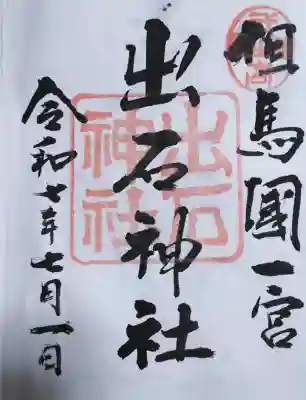 但馬國一宮
出石神社
令和七年七月一日
出石
神社